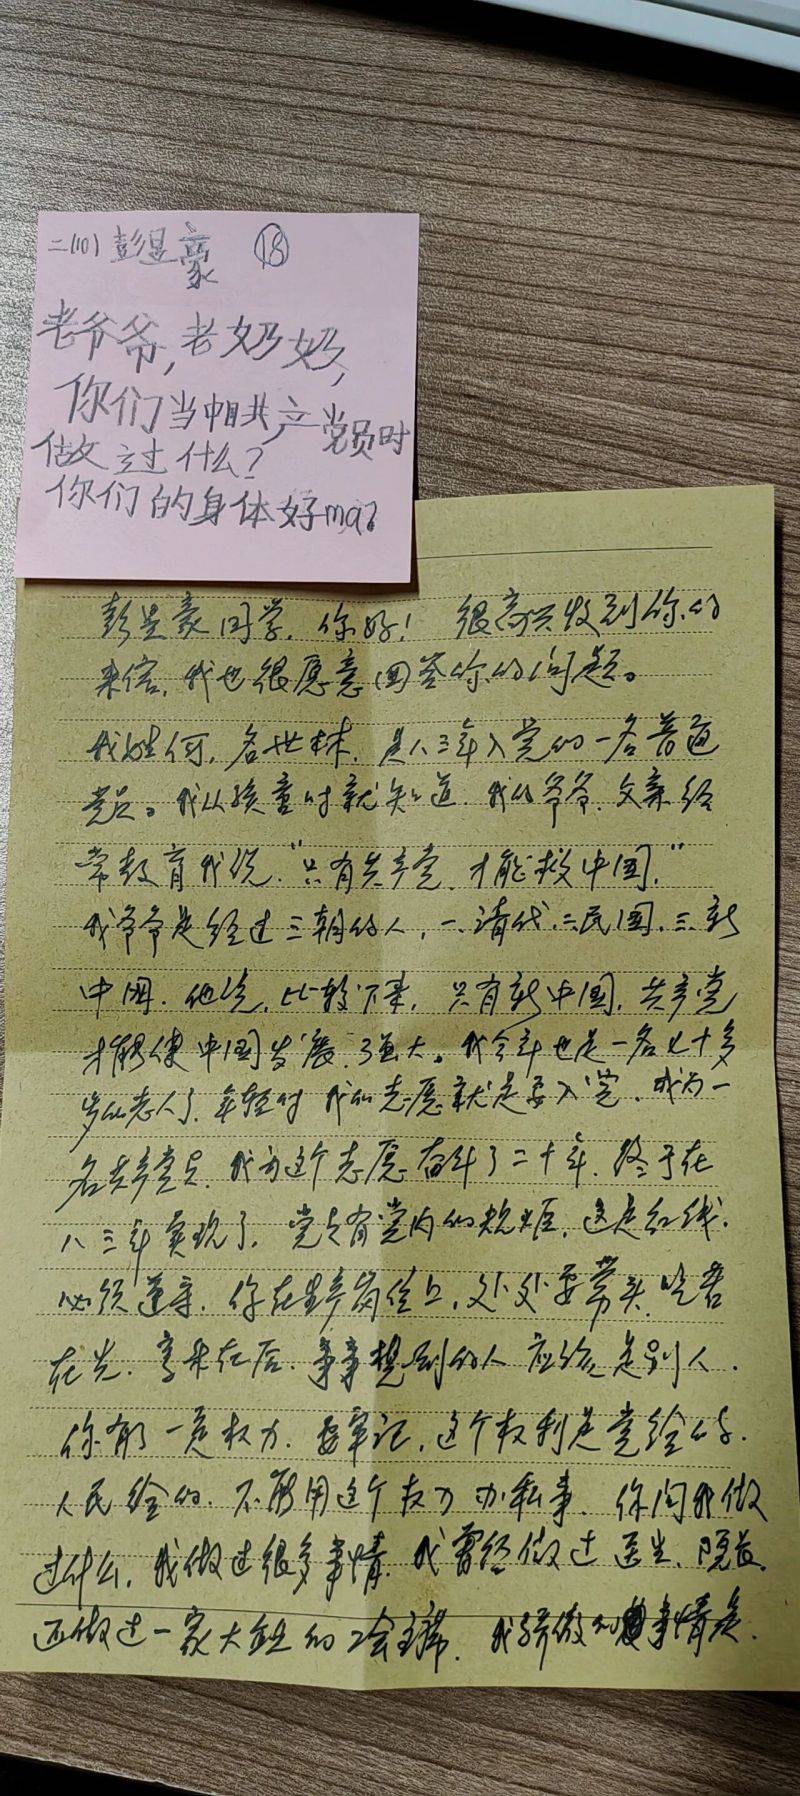 二(10) 彭昱豪 ⑱
老爷爷,老奶奶,
你们当中国共产党员时
做过什么?
你们的身体好ma?
彭昱豪同学,你好! 很高兴收到你的
来信,我也很愿意回答你的问题。
我姓何,名世林,是八三年入党的一名普通
党员。我从孩童时就知道,我的爷爷、父亲经
常教育我说,"只有共产党,才能救中国,"
我爷爷是经过三朝的人,一、清代,二、民国,三、新
中国,他说,比较下来,只有新中国,共产党
才能使中国发展,强大。我今年也是一名七十多
岁的老人了,年轻时我的志愿就是要入党,成为一
名共产党员,我为这个志愿奋斗了二十年,终于在
八三年实现了,党员有党内的规矩,这是红线,
必须遵守,你在生产岗位上,处处要带头,吃苦
在先,享乐在后,事事想到的人应该是别人,
你有了一定权力,要牢记,这个权利是党给的,
人民给的,不能用这个权力办私事,你问我做
过什么,我做过很多事情,我曾经做过医生、院长,
还做过一家大企业的工会主席,我所做的事情是,